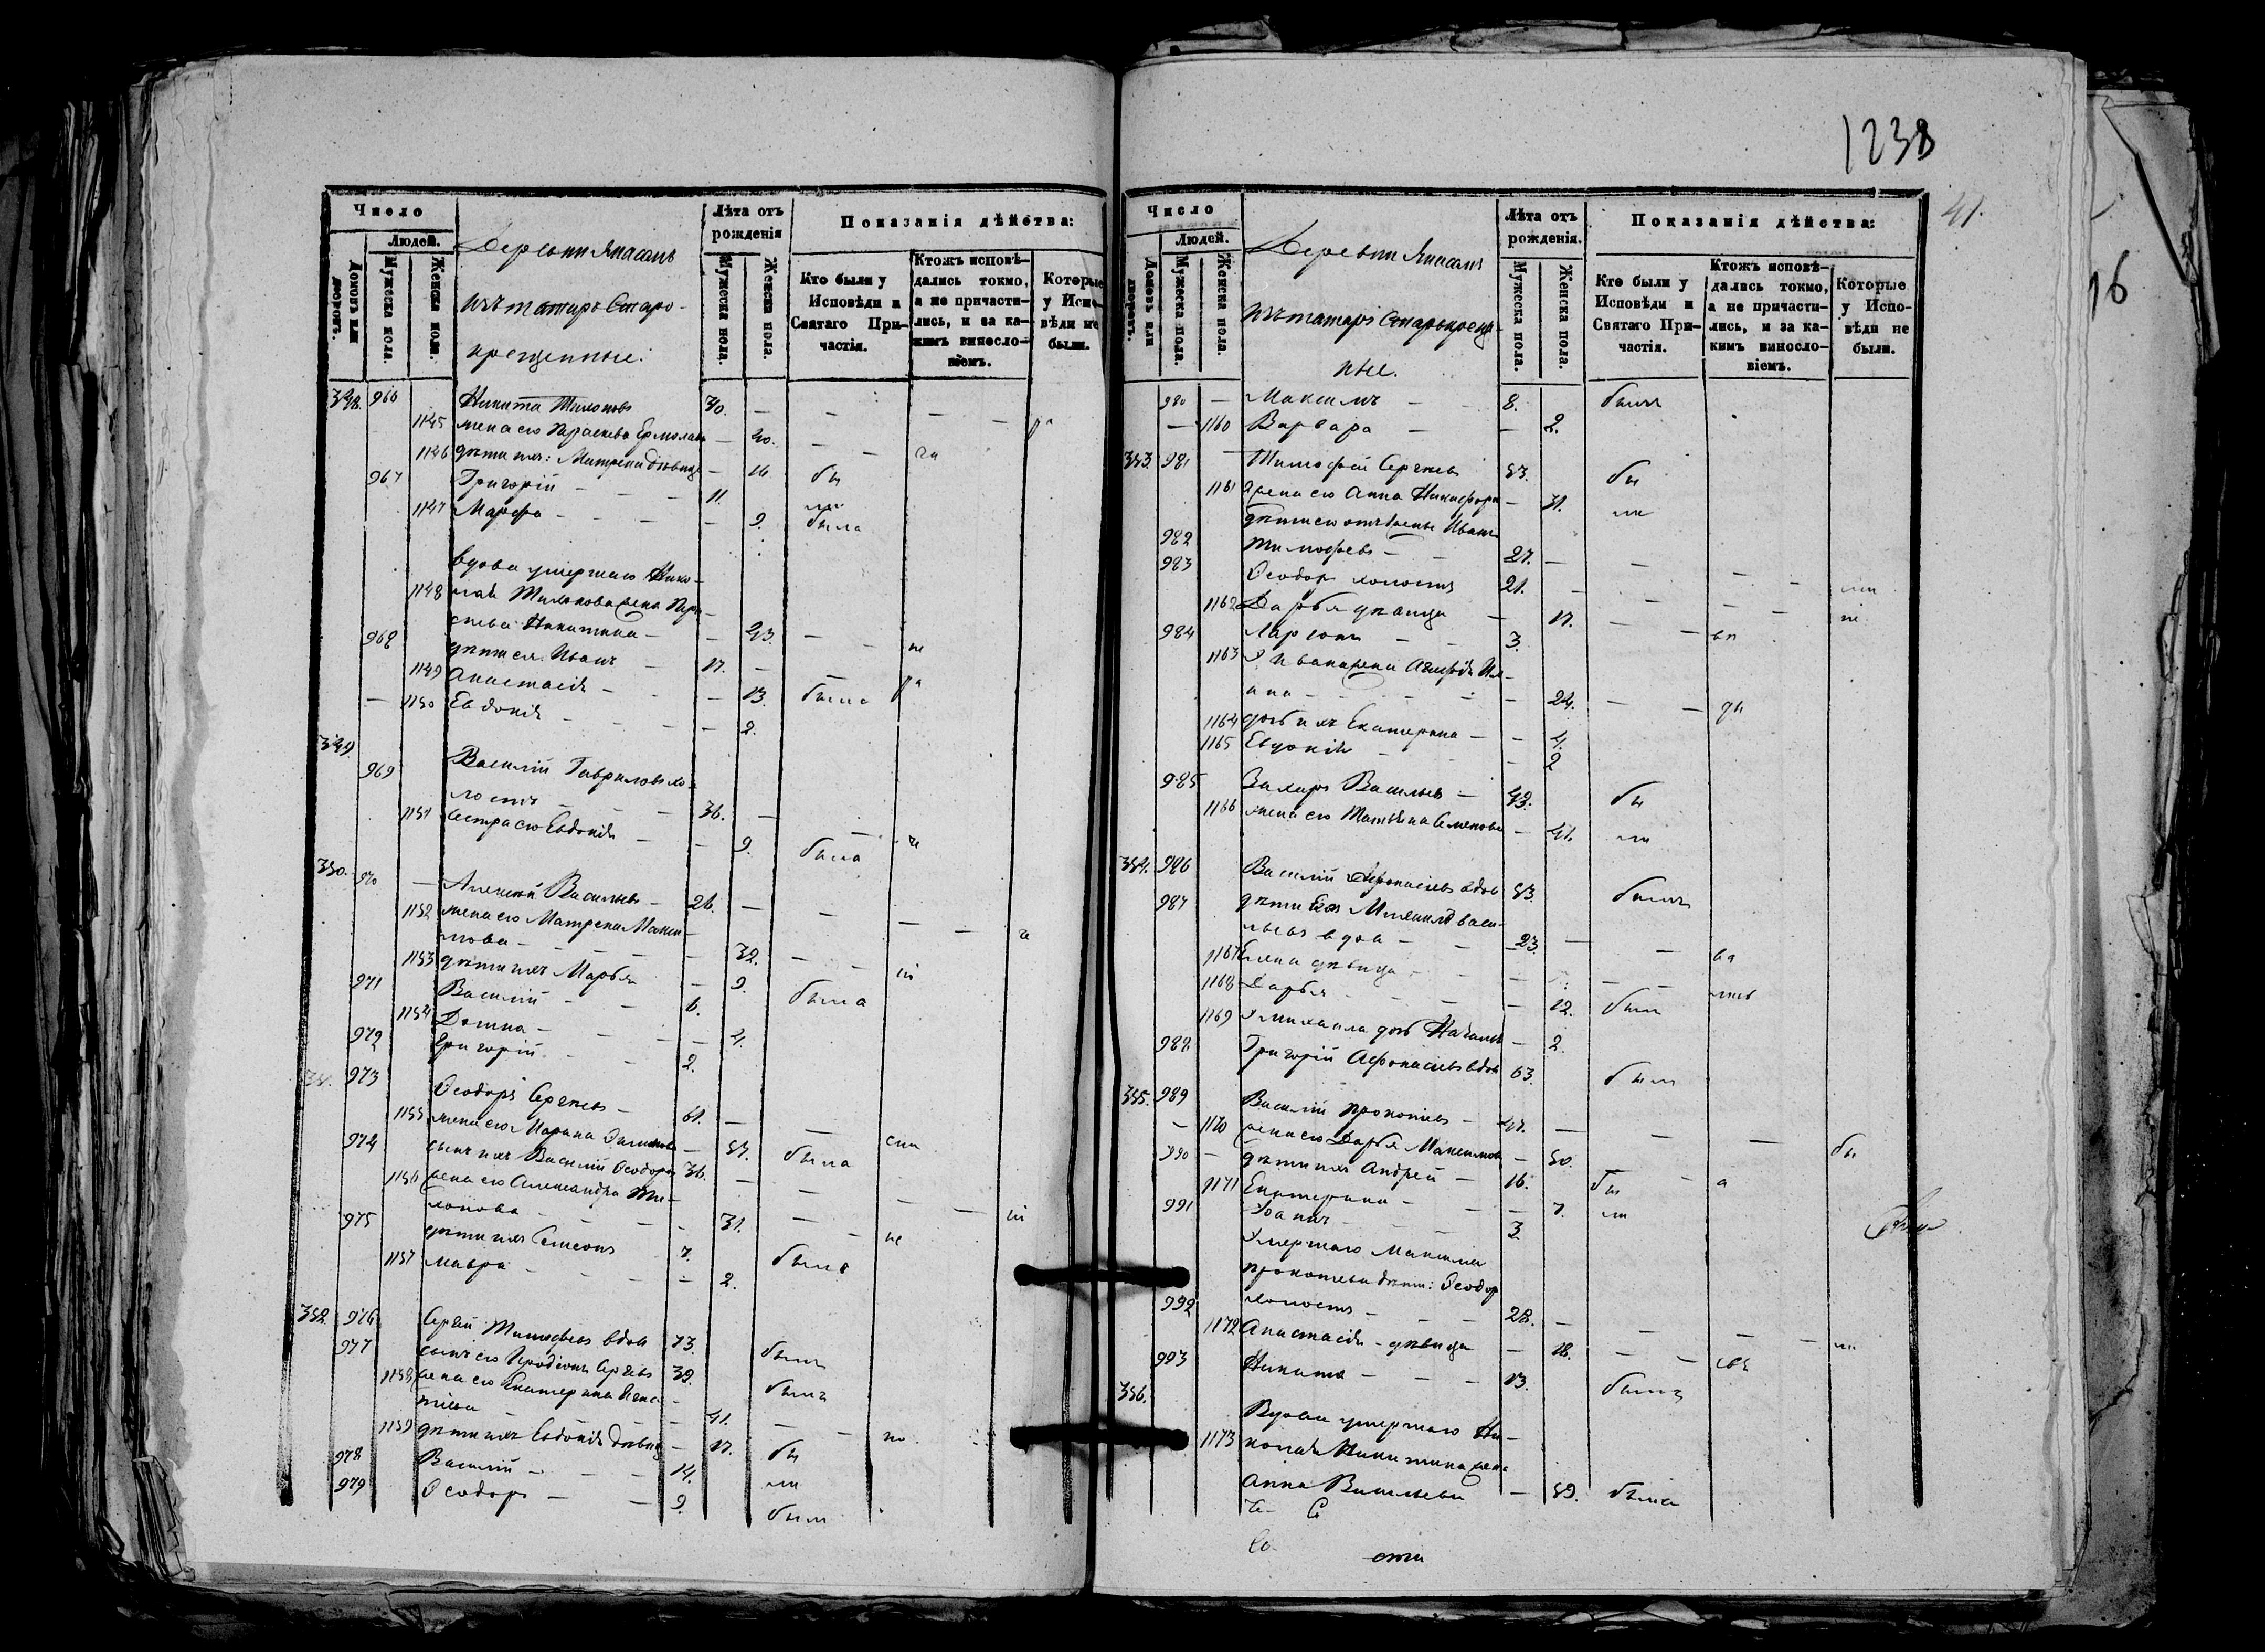 1238
41.
16
Число
Людей.
Домовъ или дворовъ.
Мужеска пола.
Женска пола.
Деревни Янасалъ
изъ татаръ Старо-
крещенные.
Лѣта отъ рожденія
Мужеска пола.
Женска пола.
Показанія дѣйства:
Кто были у Исповѣди и Святаго Причастія.
Ктожъ исповѣдались токмо, а не причастились, и за какимъ винословіемъ.
Которые у Исповѣди не были.
348. 966 Никита Тихоновъ 30.
1145 жена его Параскева Ермолаева 40.
1146 дѣти ихъ: Матрена дѣвица 16 бы
967 Григорій 11. ли
1147 Марфа 9. была
вдова умершаго Нико-
1148 лая Тихонова жена Пара-
скева Никитина 43.
968 дѣти ея Иванъ 17.
1149 Анастасія 13. была
1150 Евдокія 2.
349.
969 Василій Гавриловъ хо-
лостъ 36.
1151 сестра его Евдокія 9. была
350. 970 Алексѣй Васильевъ 26.
1152 жена его Матрена Макси-
мова 32.
1153 дѣти ихъ Марья 9. была
971 Василій 6.
1154 Домна 4.
972 Григорій 2.
973 Ѳеодоръ Сергѣевъ 61.
1155 жена его Марина 57. была
974 сынъ ихъ Василій Ѳеодоровъ 36.
1156 жена его Александра Ти-
хонова 31.
975 дѣти ихъ Симеонъ 7. былъ
1157 Мавра 2.
352 976 Сергѣй Тимофеевъ вдовъ 73. былъ
977 сынъ его Иродіонъ Сергѣевъ 39. былъ
1158 жена его Екатерина Игна-
тіева 41.
1159 дѣти ихъ Евдокія дѣвица 17. бы
978 Василій 14. ли
979 Ѳеодоръ 9. былъ
Число
Людей.
Домовъ или дворовъ.
Мужеска пола.
Женска пола.
Деревни Янасалъ
изъ татаръ Старокреще-
ные.
Лѣта отъ рожденія.
Мужеска пола.
Женска пола.
Показанія дѣйства:
Кто были у Исповѣди и Святаго Причастія.
Ктожъ исповѣдались токмо, а не причастились, и за какимъ винословіемъ.
Которые у Исповѣди не были.
980 Максимъ 8. былъ
1160 Варвара 2.
353. 981 Тимофей Сергѣевъ 53. бы
1161 жена его Анна Никифорова 31. ли
дѣти его отъ 1 жены Иванъ
982 Тимофеевъ 27.
983 Ѳеодоръ холостъ 21.
1162 Дарья дѣвица 17.
984 Ларіонъ 3.
1163 У Ивана жена Агафія
24.
1164 дочь ихъ Екатерина 4.
1165 Евдокія 2
985 Захаръ Васильевъ 43. бы
1166 жена его Татьяна Семенова 41. ли
354. 986 Василій Афонасіевъ вдовъ 53. былъ
987 дѣти Его Михаилъ Васи-
льевъ вдовъ 23.
1167 Елена дѣвица
1168 Дарья 12. была
1169 У Михаила дочь Наталья 2.
988 Григорій Афонасіевъ вдовъ 63. былъ
355. 989 Василій Прокопіевъ 47.
1170 жена его Дарья Максимова 50.
990 дѣти ихъ Андрей 16. бы
1171 Екатерина 7. ли
991 Іоаннъ 3
Умершаго Максима
Прокопьева дѣти: Ѳеодоръ
992 холостъ 28.
1172 Анастасія дѣвица 18.
993 Никита 13. былъ
356.
Вдова умершаго Ни-
1173 колая Никитина жена
Анна Васильева 59. была